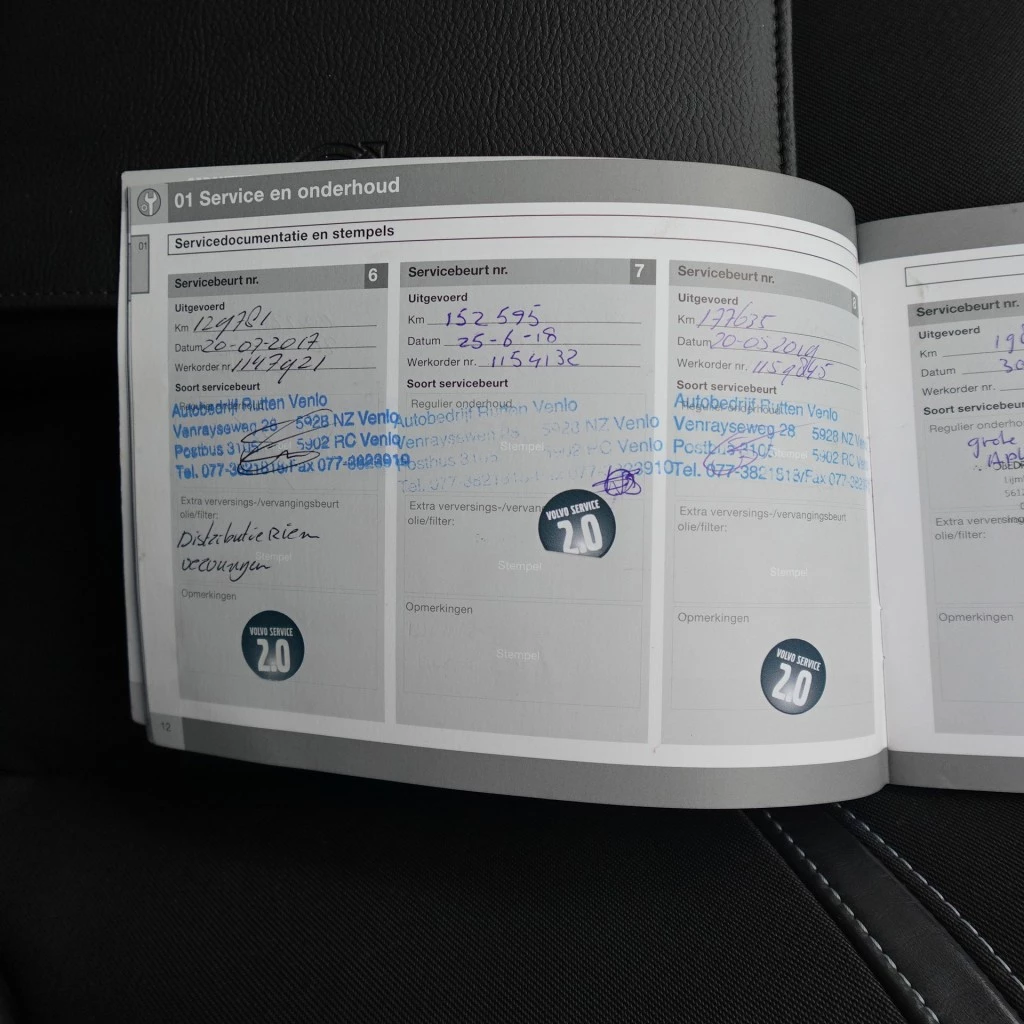 01 Service en onderhoud
01
Servicedocumentatie en stempels
Servicebeurt nr. 6
Uitgevoerd
Km 129781
Datum 20-07-2017
Werkorder nr. 1147921
Soort servicebeurt
Regulier onderhoud
Autobedrijf Rutten Venlo
Venrayseweg 28 5928 NZ Venlo
Postbus 3105 5902 RC Venlo
Tel. 077-3821818/Fax 077-3823910
Extra verversings-/vervangingsbeurt
olie/filter:
Distributie Riem
vervangen
Stempel
Opmerkingen
VOLVO SERVICE
2.0
12
Servicebeurt nr. 7
Uitgevoerd
Km 152595
Datum 25-6-18
Werkorder nr. 1154132
Soort servicebeurt
Regulier onderhoud
Autobedrijf Rutten Venlo
Venrayseweg 28 5928 NZ Venlo
Stempel
Postbus 3105 5902 RC Venlo
Tel. 077-3821818/Fax 077-3823910
Extra verversings-/vervan
olie/filter:
VOLVO SERVICE
2.0
Stempel
Opmerkingen
Stempel
Servicebeurt nr. 8
Uitgevoerd
Km 177635
Datum 20-05-2019
Werkorder nr. 1159845
Soort servicebeurt
Regulier onderhoud
Autobedrijf Rutten Venlo
Venrayseweg 28 5928 NZ V
Postbus 3105 5902 RC Ve
Tel. 077-3821818/Fax 077-382
Extra verversings-/vervangingsbeurt
olie/filter:
Stempel
Opmerkingen
VOLVO SERVICE
2.0
Servicebeurt nr.
Uitgevoerd
Km 19
Datum 30
Werkorder nr.
Soort servicebeur
Regulier onderho
grote
561
Extra verversing
olie/filter:
Opmerkingen